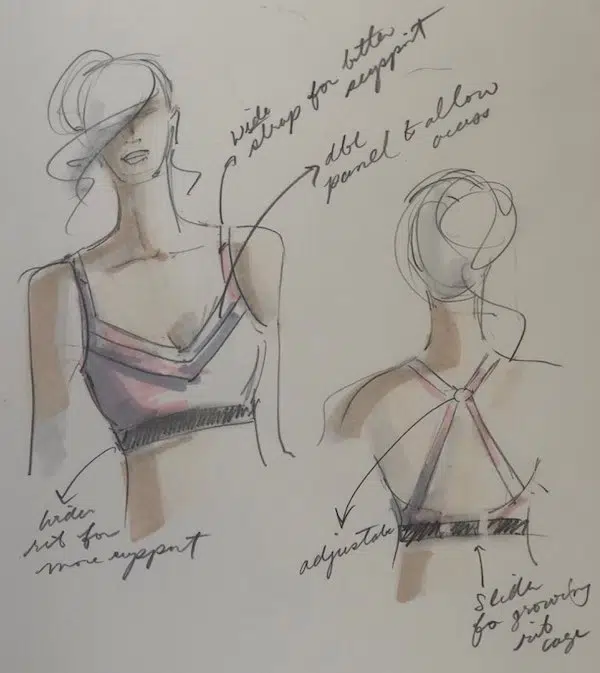 wide
strap for better
support
dbl
panel to allow
access
wider
rib for
more support
adjustable
slider
for growing
rib
cage